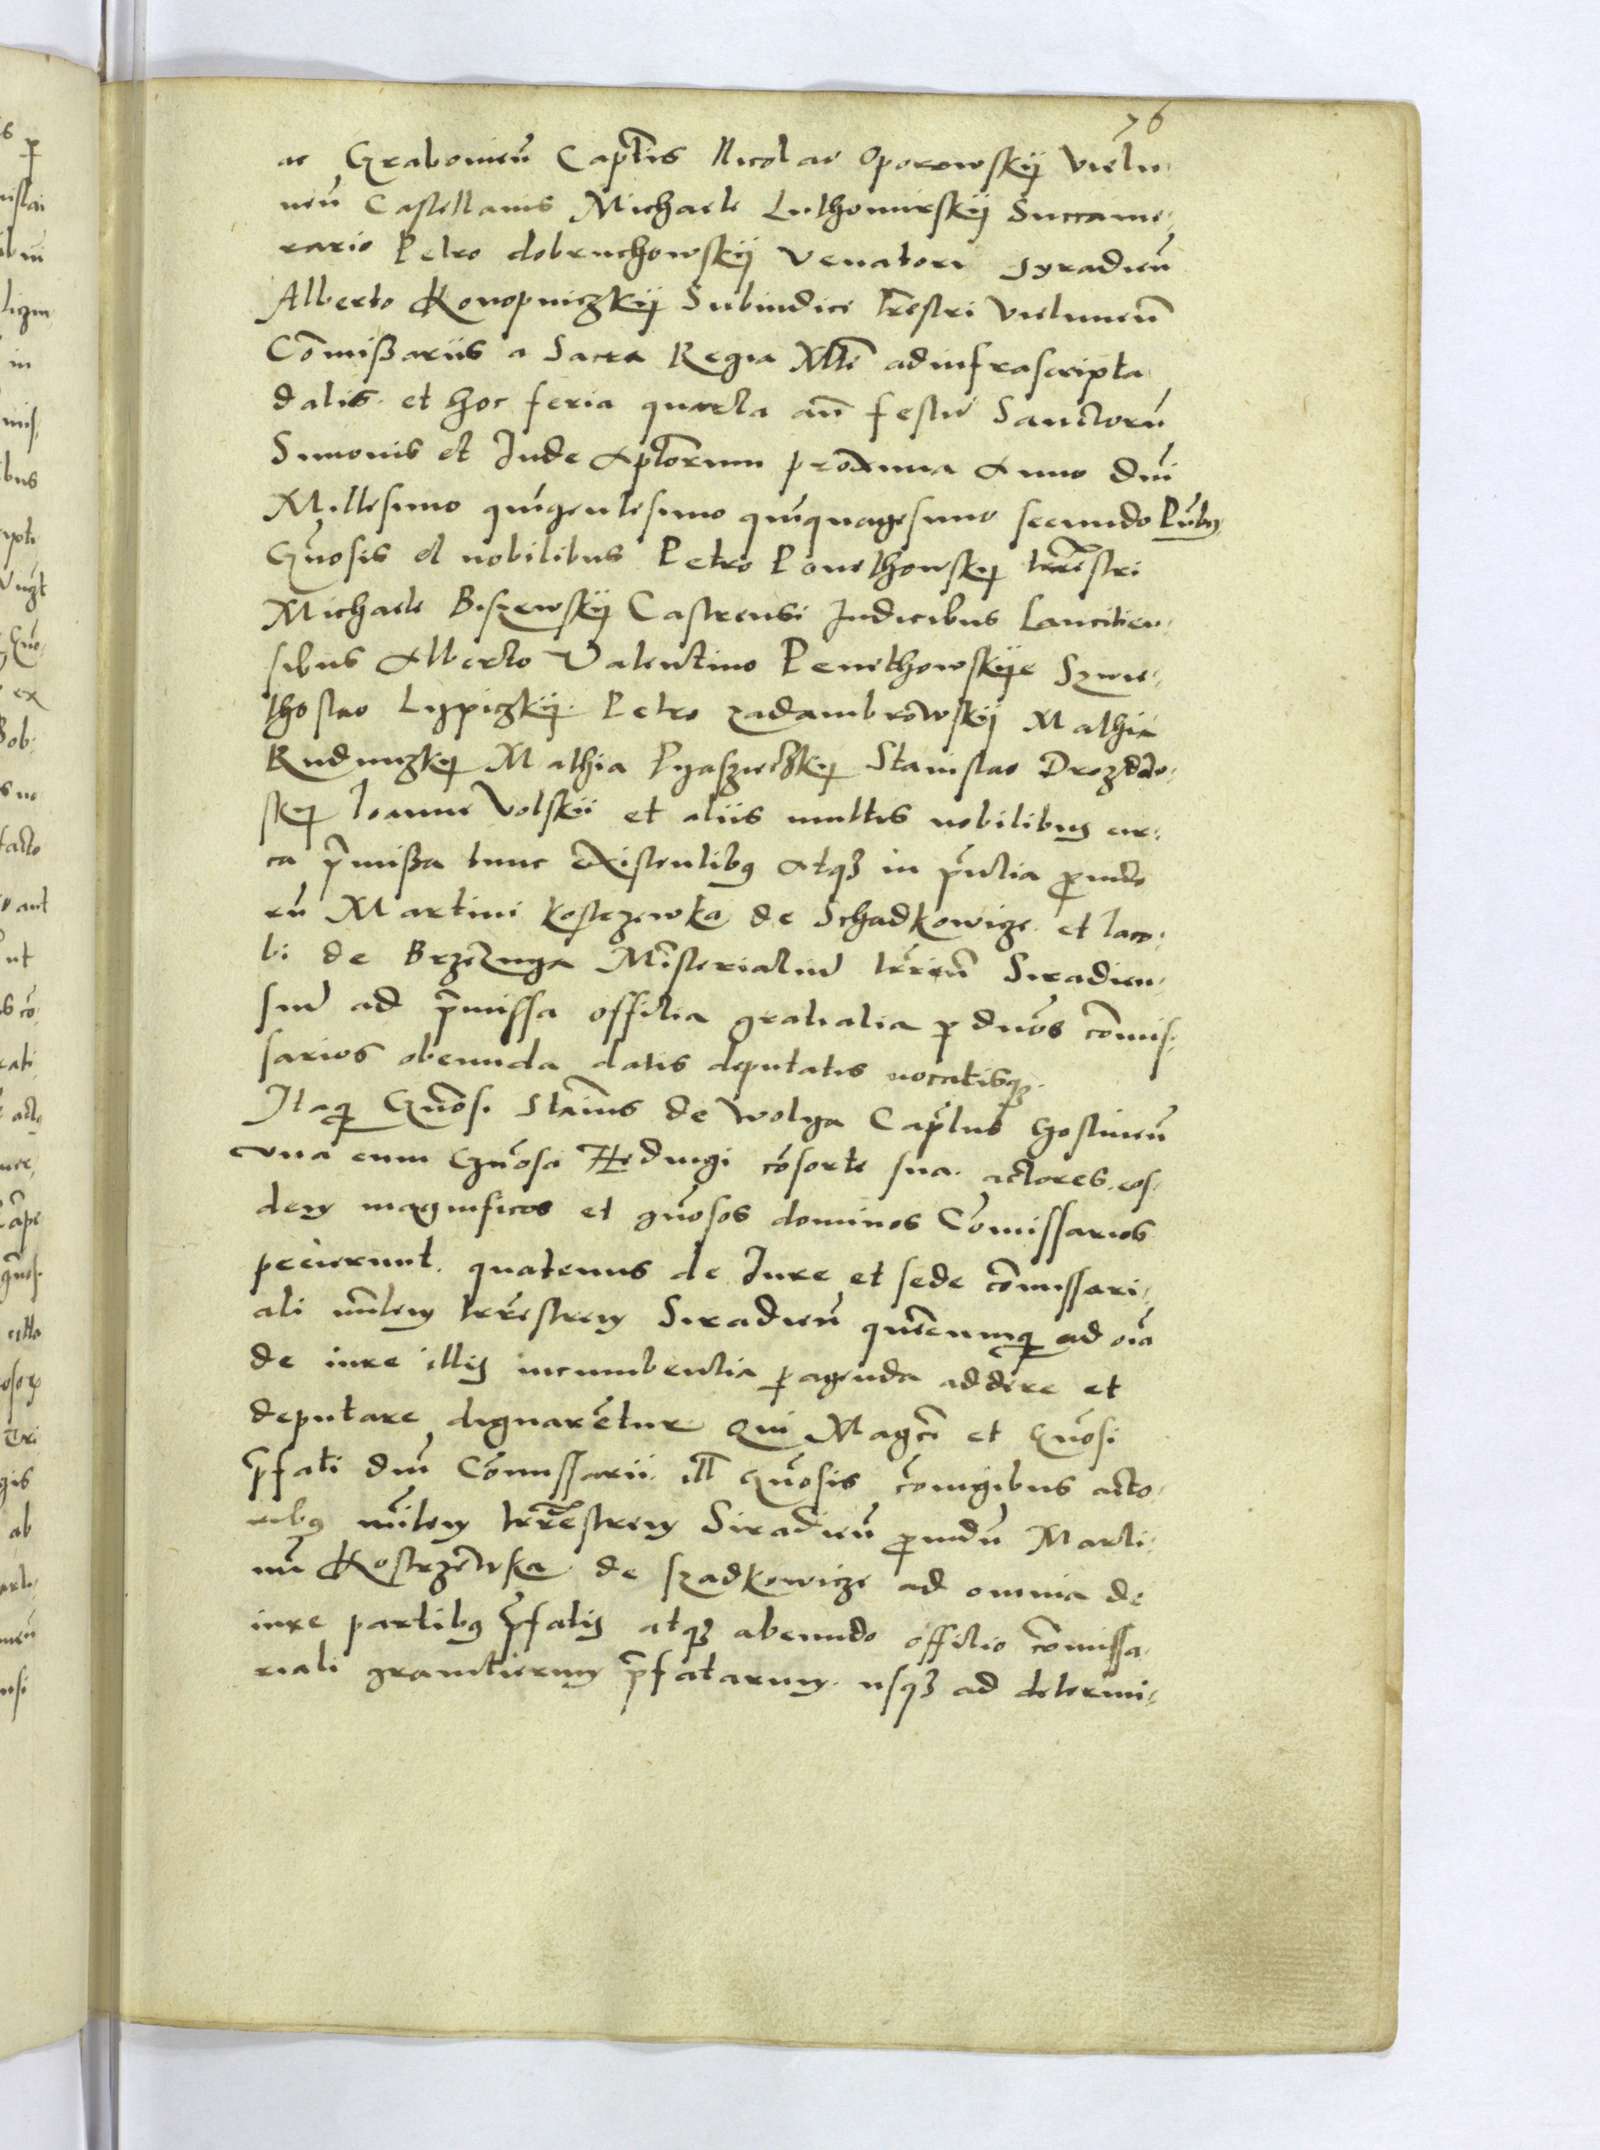 76
ac Grabouieñ Captis Nicolao Oporowskij Vielu-
neñ Castellanis Michaele Luthomirskij Succame-
rario Petro dobruchowskij Venatore Syradieñ
Alberto Konopniczkij Subiudice trestri Vieluneñ
Comißariis a Sacra Regia Mtte ad infrascripta
datis et hoc feria quarta añ festu Sanctorũ
Simonis et Iude Aptlorum proxima Anno dni
Millesimo quigentesimo quiquagesimo secundo Pntibus
Gnosis et nobilibus Petro Ponethowskij terrestri
Michaele Biszewskij Castrensi Iudicibus Lancicien-
sibus Alberto Valentino Penethowskije Szwie-
thoslao Lypiczkij Petro zadambrowskij Mathia
Rudniczkij Mathia Pyaszeczkij Stanislao Drozdo-
skij Ioanne Volskii et aliis multis nobilibus cir-
ca pmißa tunc existentibus atqȝ in pñtia puido
rũ Martini Kostrzewka de Schadkowicze et Iaco-
bi de Brzeznya Misterialiu terreñ Siradien-
siu ad pmissa officia gratialia p dños comis-
sarios obeunda datis deputatis uocatisqȝ
Itaqȝ Gnosi Stanis de Wolya Captus Gostineñ
vna cum Gnosa Heduigi cosorte sua actores eos-
dem magnificos et gnosos dominos Comissarios
pecierunt quatenus de Iure et sede comissari-
ali mlem terrestrem Siradieñ quecumqȝ ad oia
de iure illis incumbentia pagenda addere et
deputare dignaretur Qui Magci et Gnosi
pfati dni Comissarii ill Gnosis coniugibus acto-
ribus milem terrestrem Siradieñ puidũ Marti-
nũ Kostrzewka de szadkowicze ad omnia de
iure partibus pfatis atqȝ abeundo officio comissa-
riali granicierum pfatarum usqȝ ad determi-